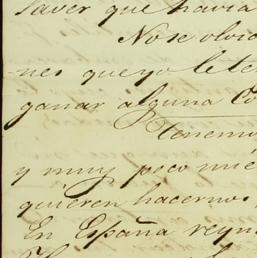 saver que havia
No se olvid
nes que yo le ten
ganar alguna Co
tenemo
y muy poco mie
quieren hacernos
En España reyn